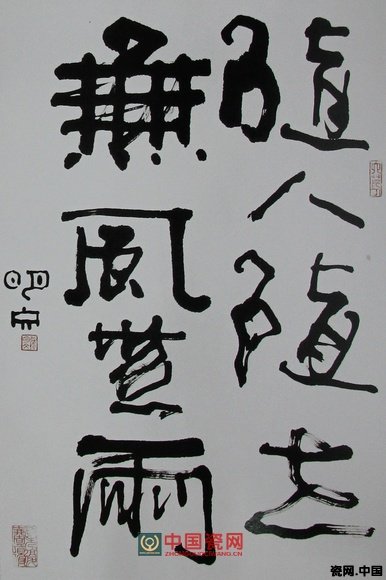 隨人隨去
無風無雨
中国瓷网
瓷网.中国